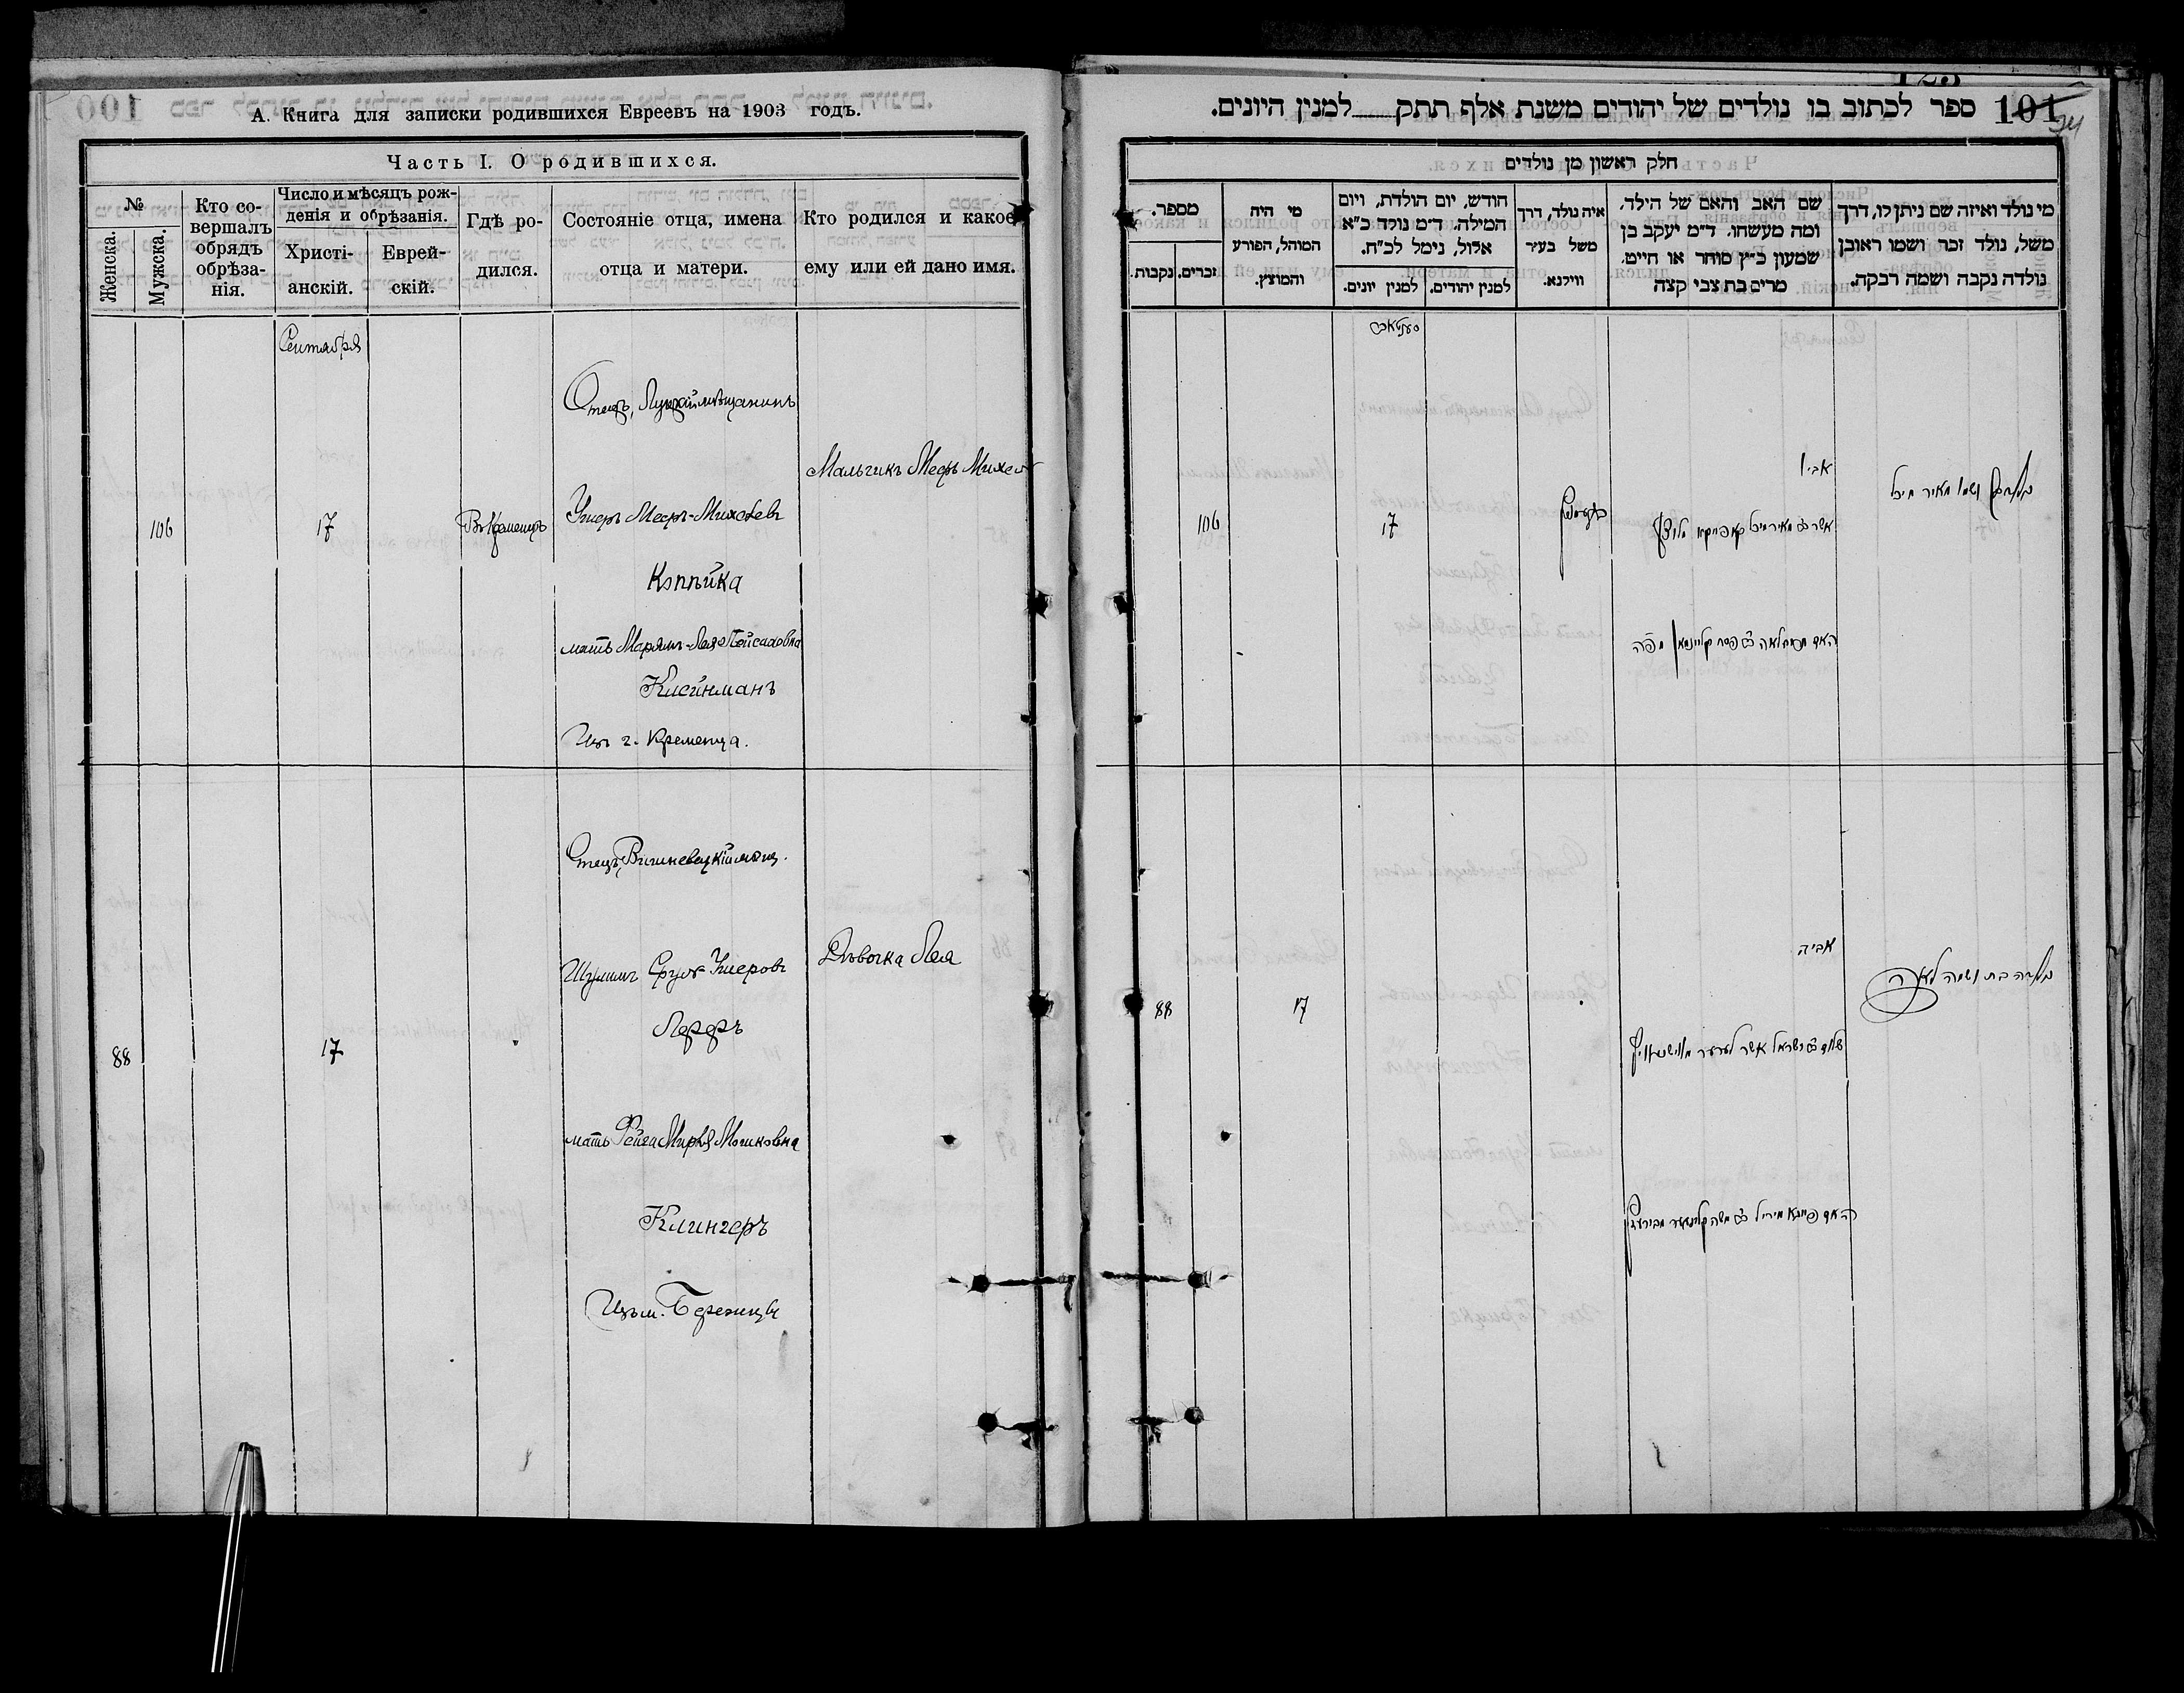 А. Книга для записки родившихся Евреевъ на 1903 годъ.
Часть I. О родившихся.
№
Женска.
Мужска.
Кто со-
вершалъ
обрядъ
обрѣза-
нія.
Число и мѣсяцъ рож-
денія и обрѣзанія.
Христі-
анскій.
Еврей-
скій.
Гдѣ ро-
дился.
Состояніе отца, имена
отца и матери.
Кто родился и какое
ему или ей дано имя.
Сентября
106
17
Въ Кременцѣ
Отецъ, Луцкій мѣщанинъ
Ушеръ Мееръ-Михелевъ
Копѣйка
мать Марьямъ-Лея Пейсаховна
Клейнманъ
Изъ г. Кременца.
Мальчикъ Мееръ Михель
88
17
Отецъ, Вишневецкій мѣщ.
Шулимъ Сруль Ушеровъ
Лереръ
мать Фейга Мирля Мошковна
Клингеръ
Изъ м. Бережцы
Дѣвочка Лея
101 ספר לכתוב בו נולדים של יהודים משנת אלף תתק למנין היונים.
חלק ראשון מן נולדים
מספר.
נקבות.
זכרים.
מי היה
המוהל, הפורע
והמוצץ.
חודש, יום הולדת, ויום
המילה. ד״מ נולד כ״א
אלול, נימל לכ״ח.
למנין יונים.
למנין יהודים.
איה נולד, דרך
משל בעיר
ווילנא.
שם האב והאם של הילד.
ומה מעשהו. ד״מ יעקב בן
שמעון כ״ץ סוחר או חייט.
מרים בת צבי קצה
מי נולד ואיזה שם ניתן לו, דרך
משל, נולד זכר ושמו ראובן
נולדה נקבה ושמה רבקה.
106
17
אביו
אשר ב״ר מאיר מיכל
האם מרים לאה ב״ר פסח קליינמאן מפה
ושמו מאיר מיכל
88
17
אביה
שלום ב״ר ישראל אשר לערער
האם פייגא מירל ב״ר משה קלינגער
בת ושמה לאה